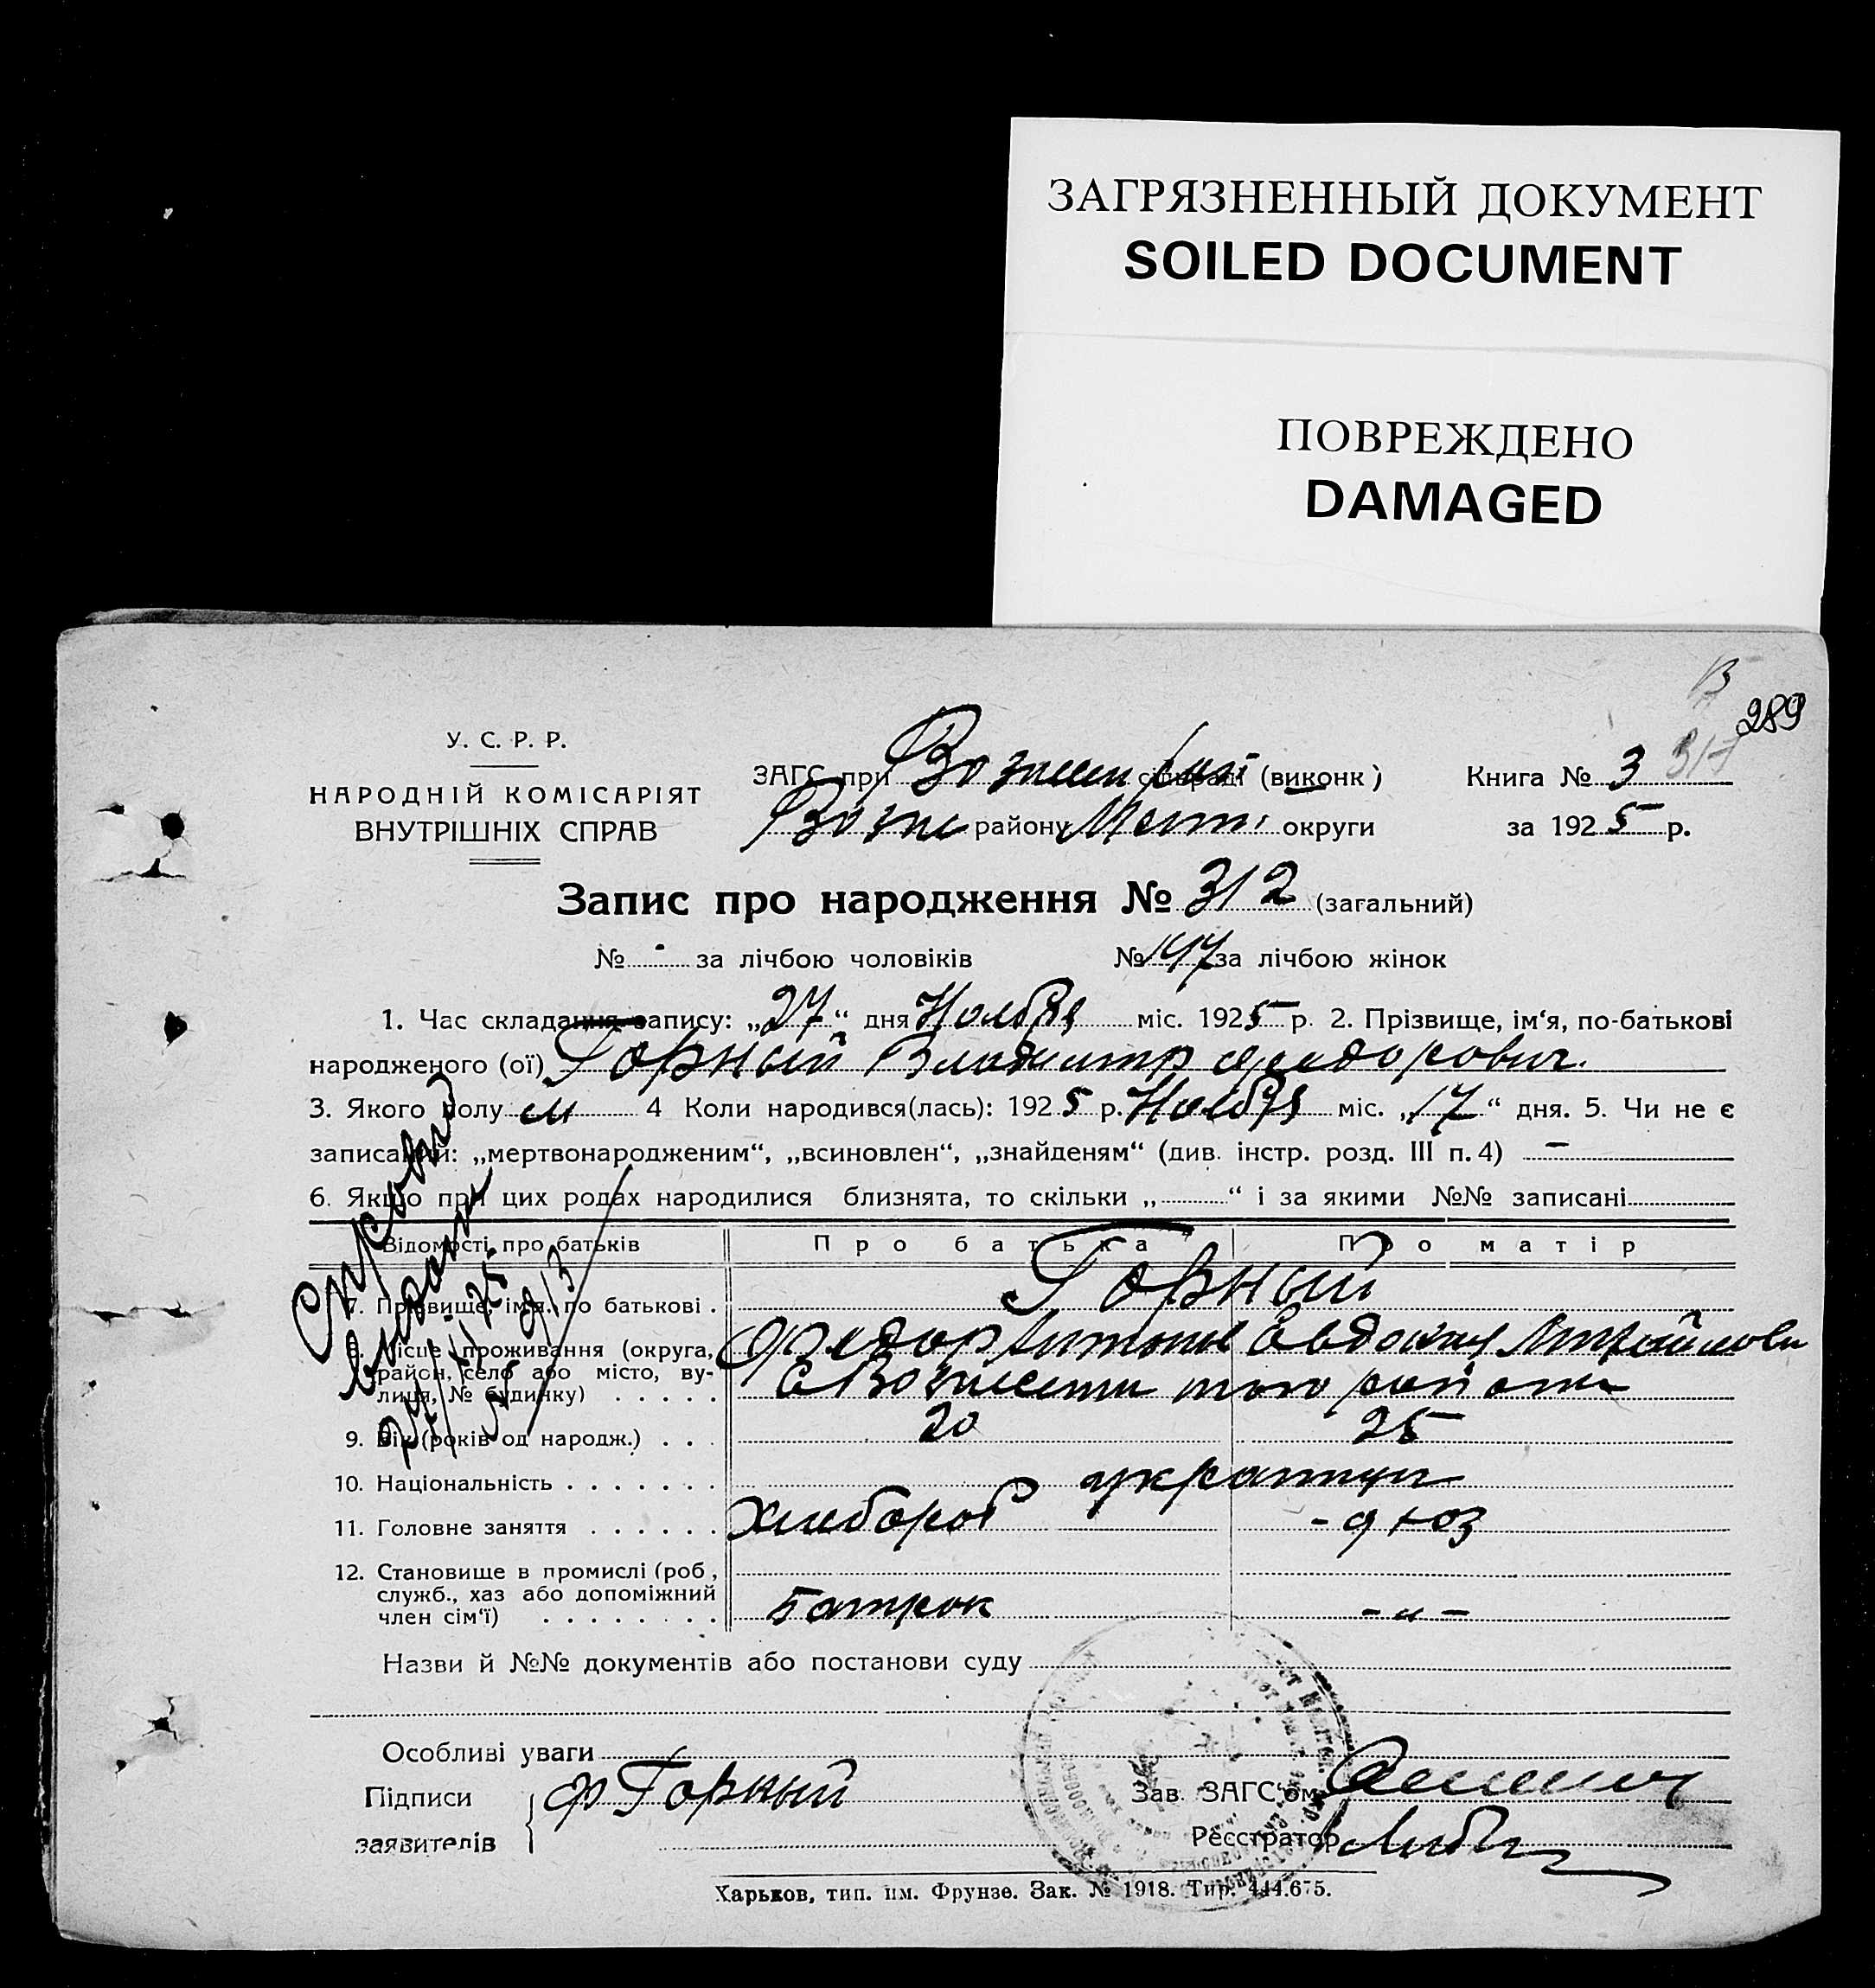 ЗАГРЯЗНЕННЫЙ ДОКУМЕНТ
SOILED DOCUMENT
ПОВРЕЖДЕНО
DAMAGED
289
317
У. С. Р. Р.
НАРОДНІЙ КОМІСАРІЯТ
ВНУТРІШНІХ СПРАВ
ЗАГС при сільраді (виконк)
района округи
Книга № 3
за 1925 р.
Запис про народження № 312 (загальний)
№ - за лічбою чоловіків № 147 за лічбою жінок
1. Час складання запису: „27“ дня Ноября міс. 1925 р. 2. Прізвище, ім‘я, по-батькові
народженого (ої) Горный Владимир Федорович.
3. Якого полу м 4 Коли народився(лась): 1925 р. Ноября міс. „17“ дня. 5. Чи не є
записаний: „мертвонародженим“, „всиновлен“, „знайденям“ (див. інстр. розд. III п. 4) –
6. Якщо при цих родах народилися близнята, то скільки „ “ і за якими №№ записані
Відомості про батьків Про батька Про матір
7. Прізвище, ім‘я, по батькові . Горный
Федор Евдокия
8. Місце проживання (округа, район, село або місто, вулиця, № будинку) . . . . .
9. Вік (років од народж.) . . . 20 25
10. Національність . . . . . . .
11. Головне заняття . . . . . . Хлебороб
12. Становище в промислі (роб, служб., хаз або допоміжний член сім‘ї) . . . . . . . . Батрак - „ -
Назви й №№ документів або постанови суду
Особливі уваги
Підписи
заявителів
Ф Горный
Зав. ЗАГС‘ом
Реєстратор
Харьков, тип. им. Фрунзе. Зак. № 1918. Тир. 444.675.